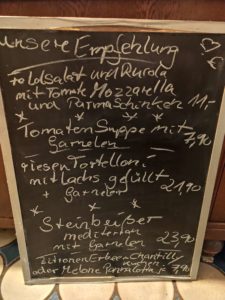 unsere Empfehlung
Feldsalat und Rucola
mit Tomate Mozzarella
und Parmaschinken 11,-
Tomaten Suppe mit
Garnelen 7,90
riesen Tortelloni
mit Lachs gefüllt
+ Garnelen 21,90
Steinbeißer
mediterran
mit Garnelen 23,90
Zitronen Erdbeer Chantilly
Kuchen
oder Melone Pannacotta je 7,90